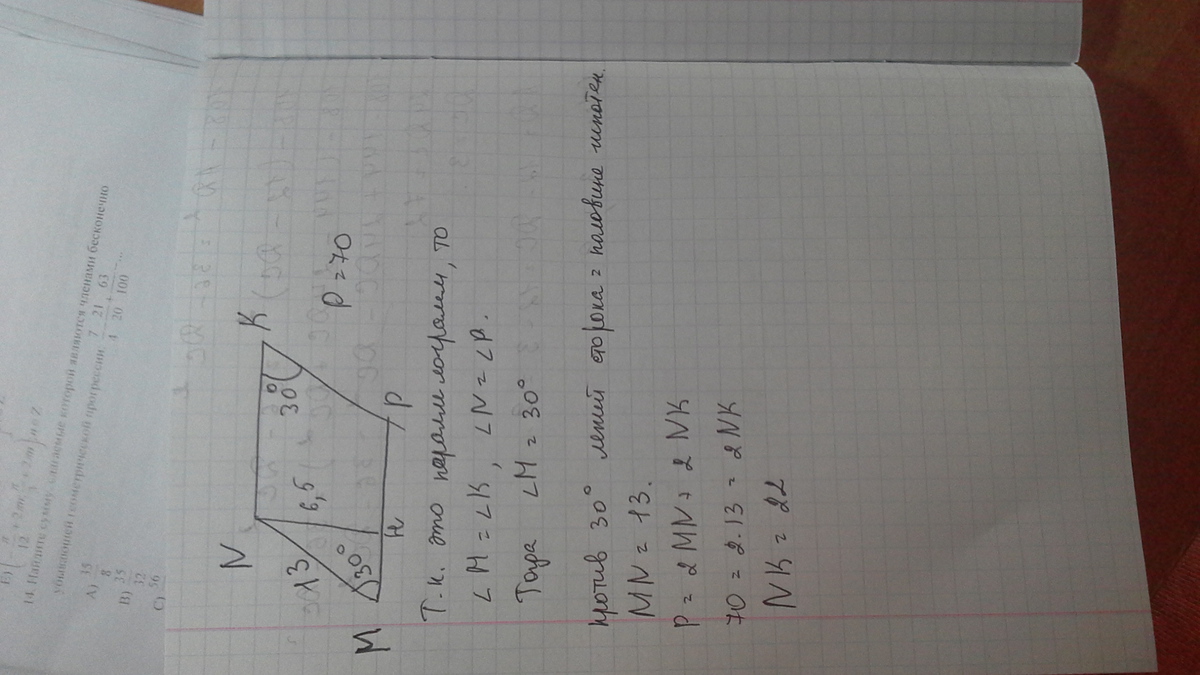 14. Найдите сумму, слагаемые которой являются членами бесконечно
убывающей геометрической прогрессии 7/4 - 21/20 + 63/100 - ...
A) 35/8
B) 35/32
C) 56
N
K
13
6,5
30°
30°
M
H
P
P = 70
Т.к. это параллелограмм, то
∠M = ∠K, ∠N = ∠P.
Тогда ∠M = 30°
против 30° лежит сторона = половине гипотен.
MN = 13.
P = 2MN + 2NK
70 = 2·13 = 2NK
NK = 22